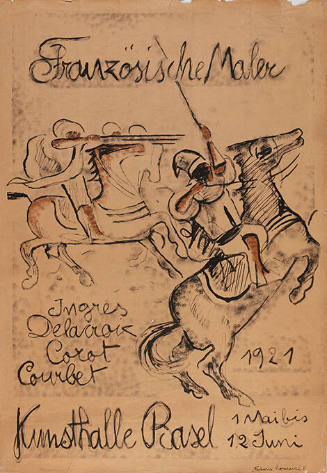 Französische Maler
Ingres
Delacroix
Corot
Courbet
1921
Kunsthalle Basel
1 Mai bis
12 Juni